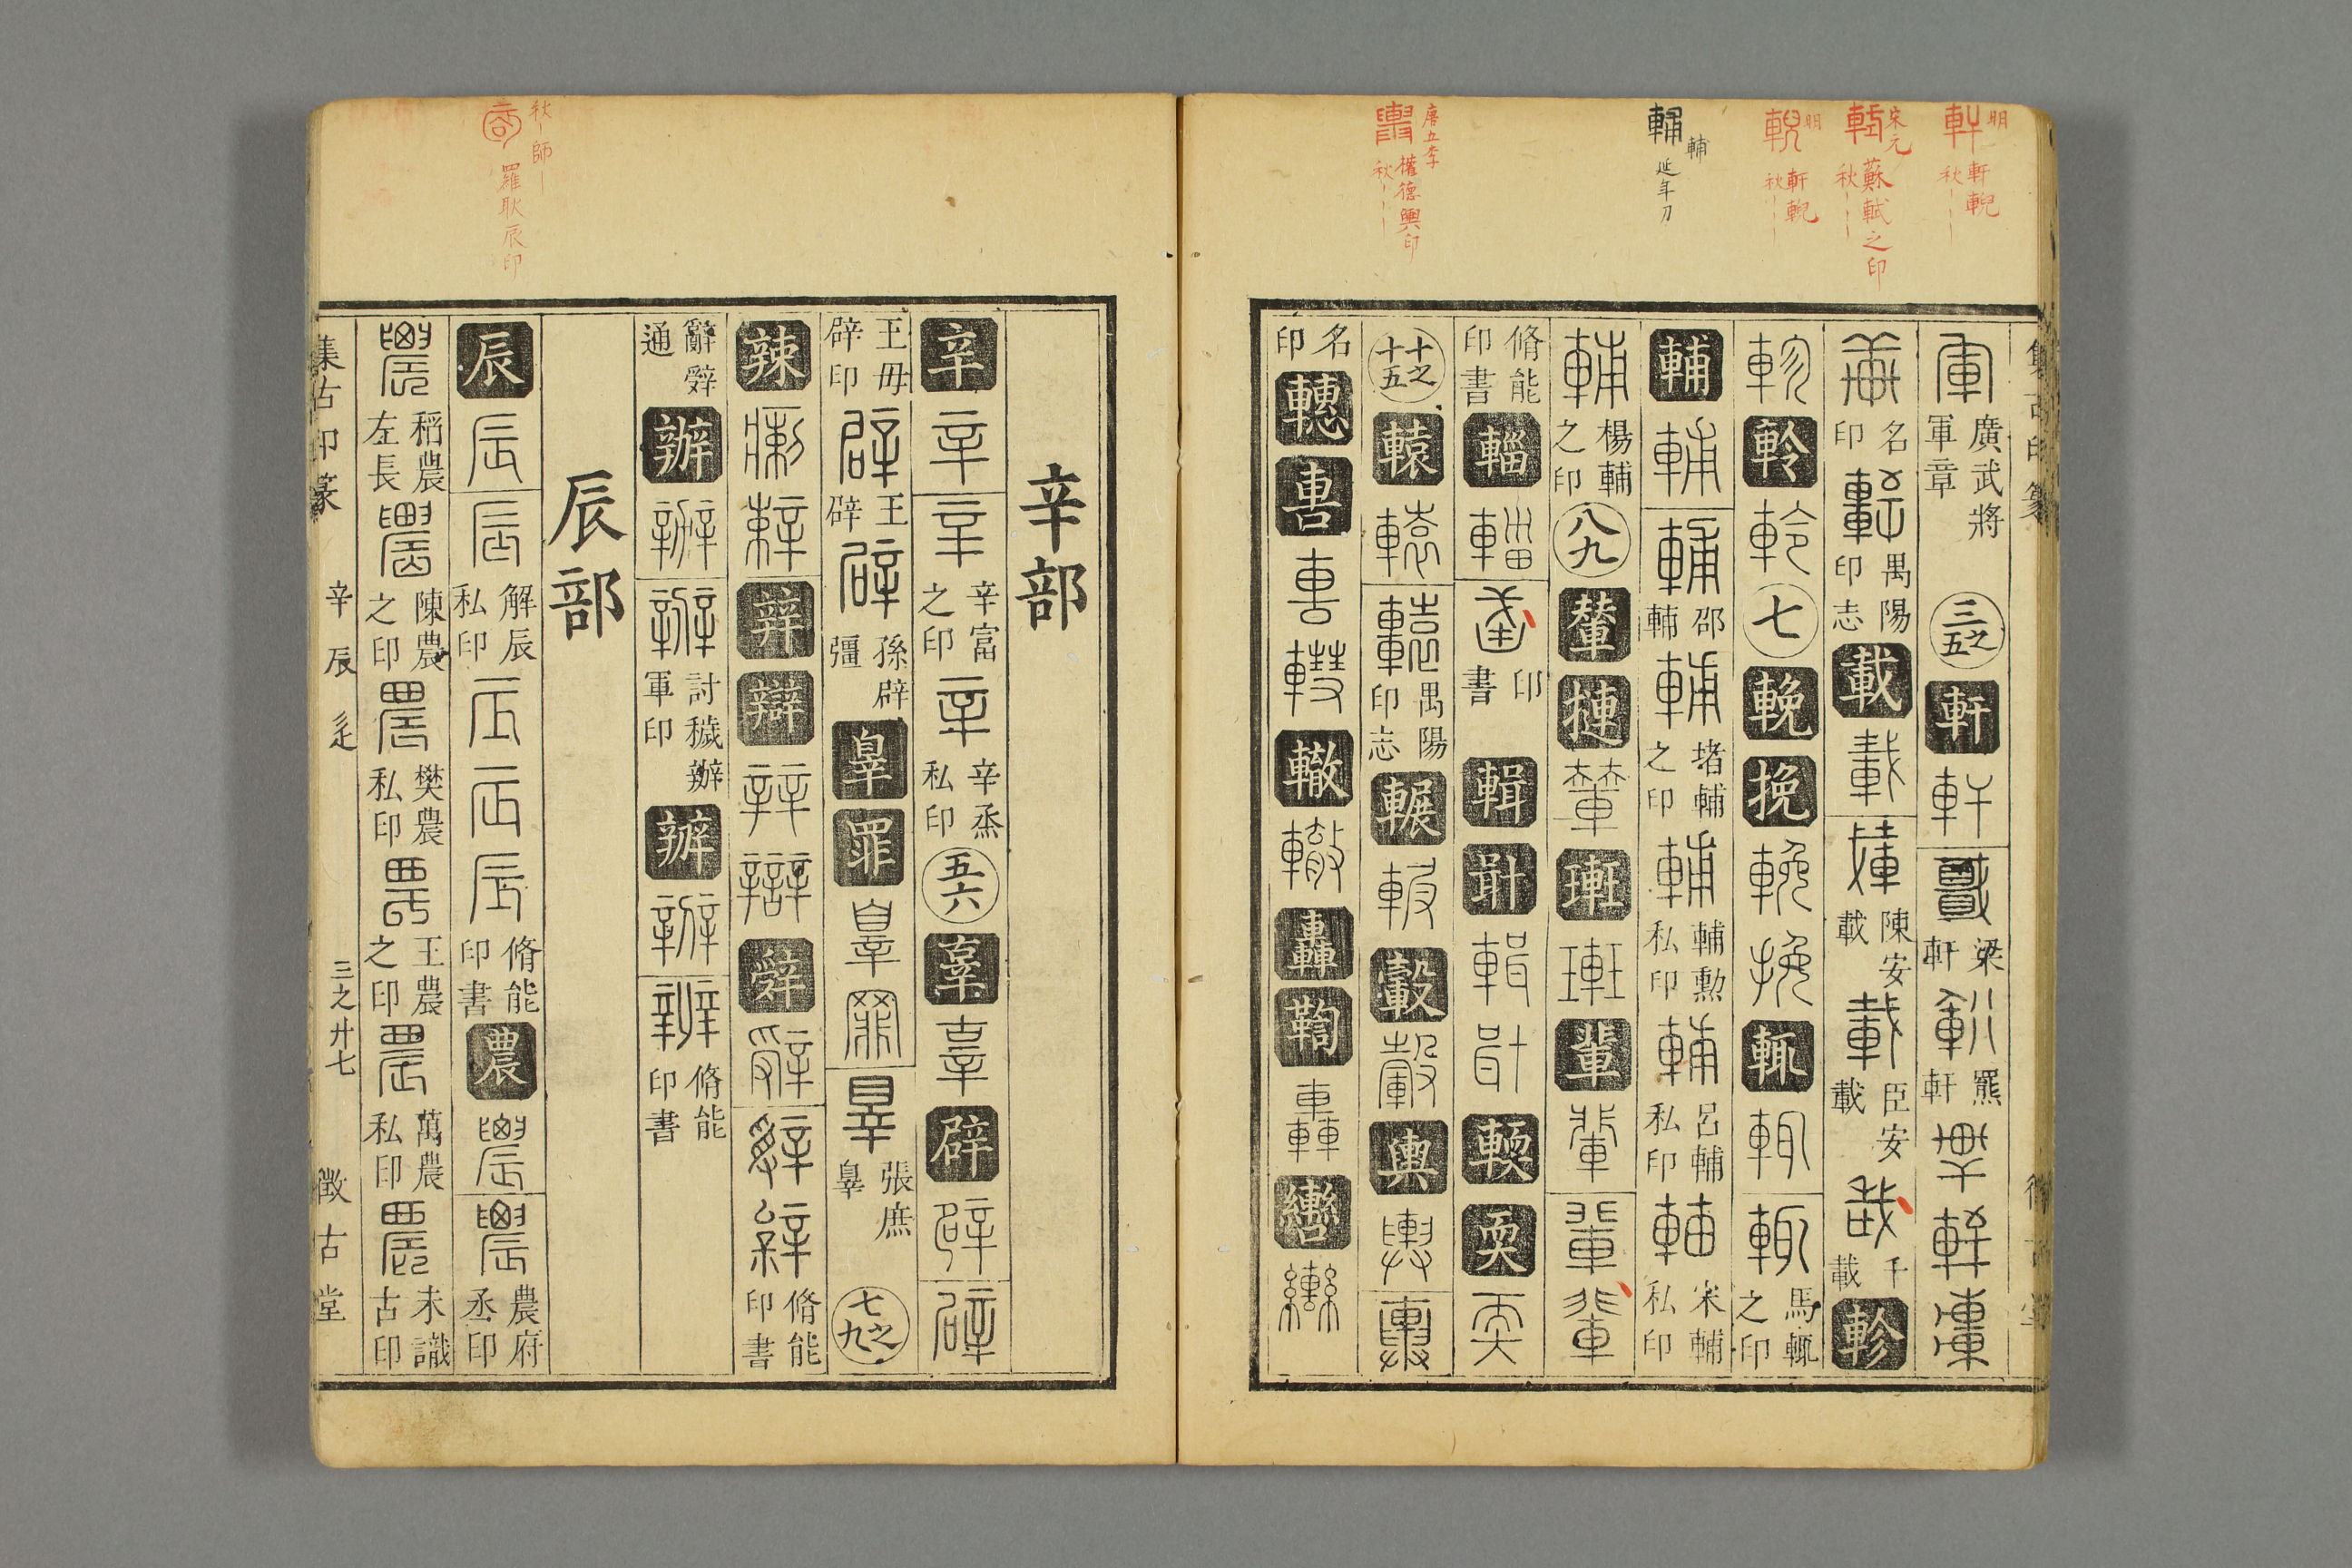 明
軒輗
秋
宋元
蘇軾之印
秋
明
軒輗
秋
輔
延年刀
唐五季
權德輿印
秋
軍 廣武將軍章 三之五 軒 軒 梁軒 羆軒
名印 禺陽印志 載 載 陳安載 臣安載 千載 軫
軫 軨 軨 七 輓 挽 輓 挽 輒 輒 輒 馬輒之印
輔 輔 輔 邵輔 輔 堵輔之印 輔 輔勲私印 輔 呂輔私印 輔 宋輔私印
輔 楊輔之印 八九 輦 摙 輦 輩 輩 輩 輩
脩能印書 輜 輜 印書 輯 輯 耎
十之十五 轅 轅 轅 禺陽印志 輾 轂 轂 輿 輿 輿
名印 轊 轊 轍 轍 轟 轟 轡 轡
辛部
辛 辛 辛 辛富之印 辛 辛烝私印 五六 辜 辜 辟 辟 辟
王毋辟印 辟 王辟 辟 孫辟彊 辠 罪 辠 罪 辠 張庶辠 七之九
辢 辡 辯 辡 辯 辤 辤 辭 辭 脩能印書
辭辤通 辦 辦 辦 討穢辦軍印 辧 辧 辧 脩能印書
辰部
辰 辰 辰 解辰私印 辰 辰 辰 脩能印書 農 農 農 農府丞印
農 稻農左長 農 陳農之印 農 樊農私印 農 王農之印 農 萬農私印 農 未識古印
集古印篆 辛 辰 辵 三之廿七 徵古堂
秋 師
羅耿辰印